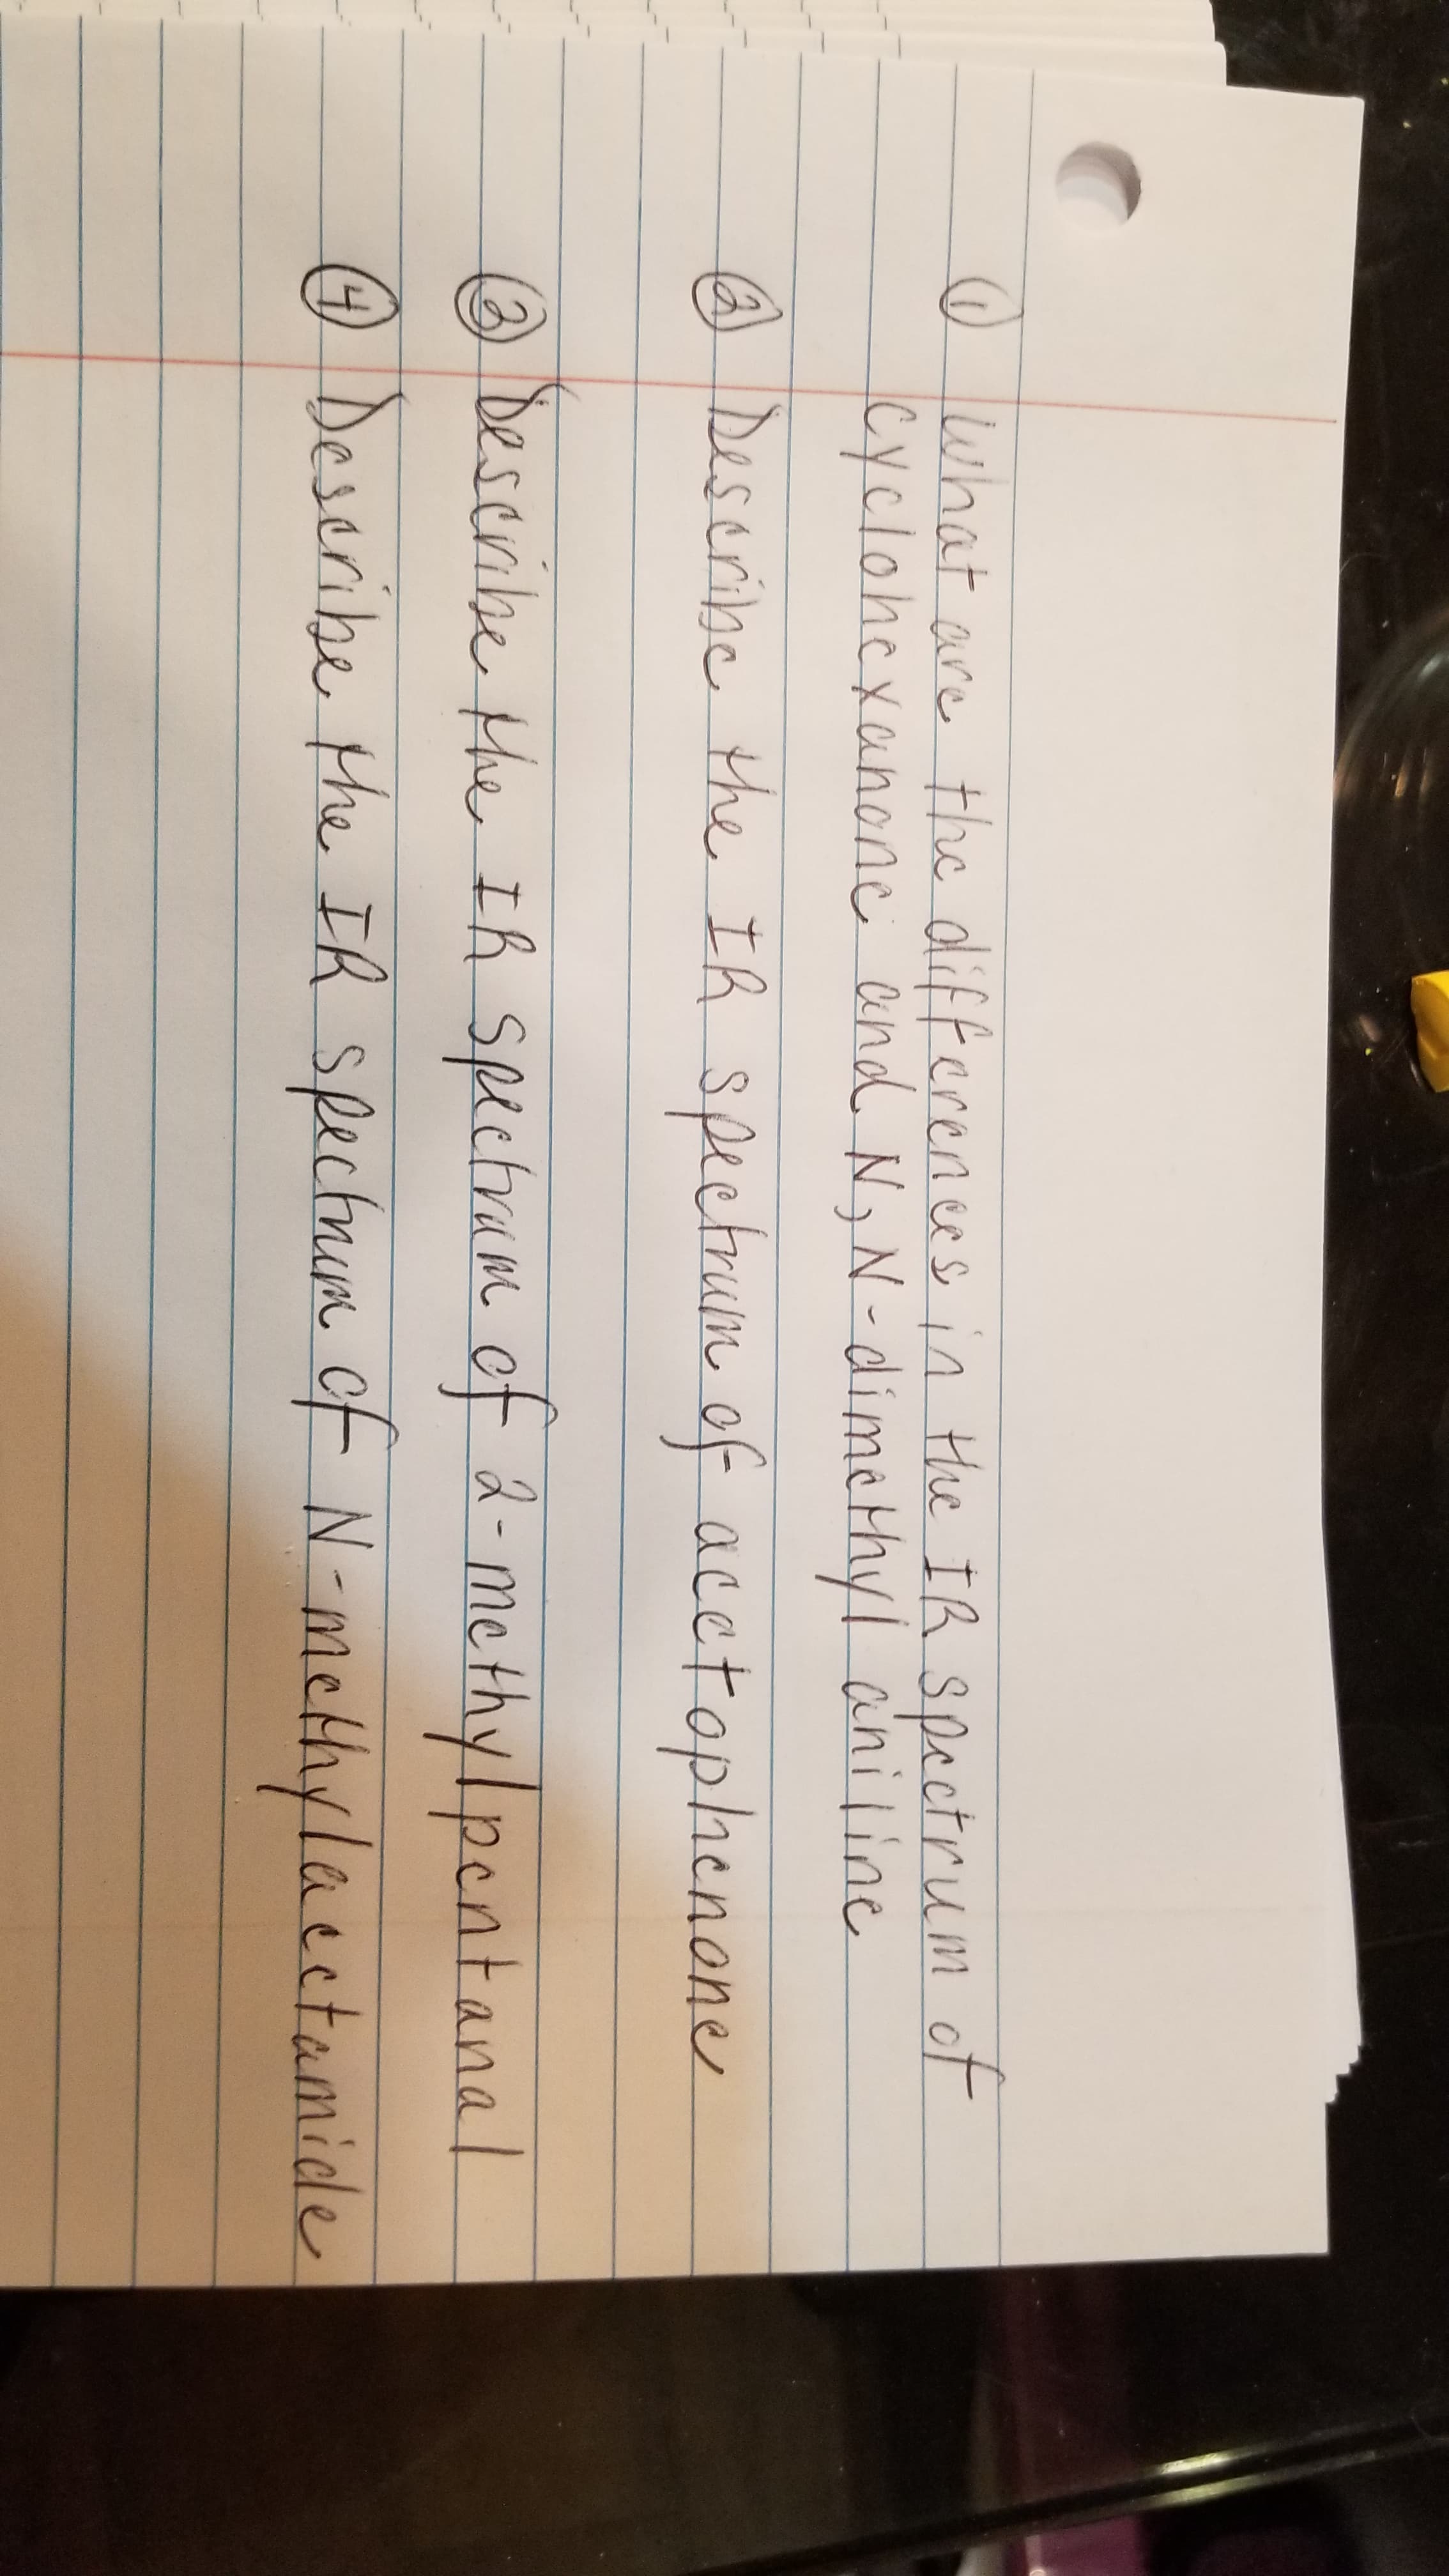 ① What are the differences in the IR spectrum of
cyclohexanone and N,N-dimethyl aniline
② Describe the IR spectrum of acetophenone
③ Describe the IR spectrum of 2-methylpentanal
④ Describe the IR spectrum of N-methylacetamide